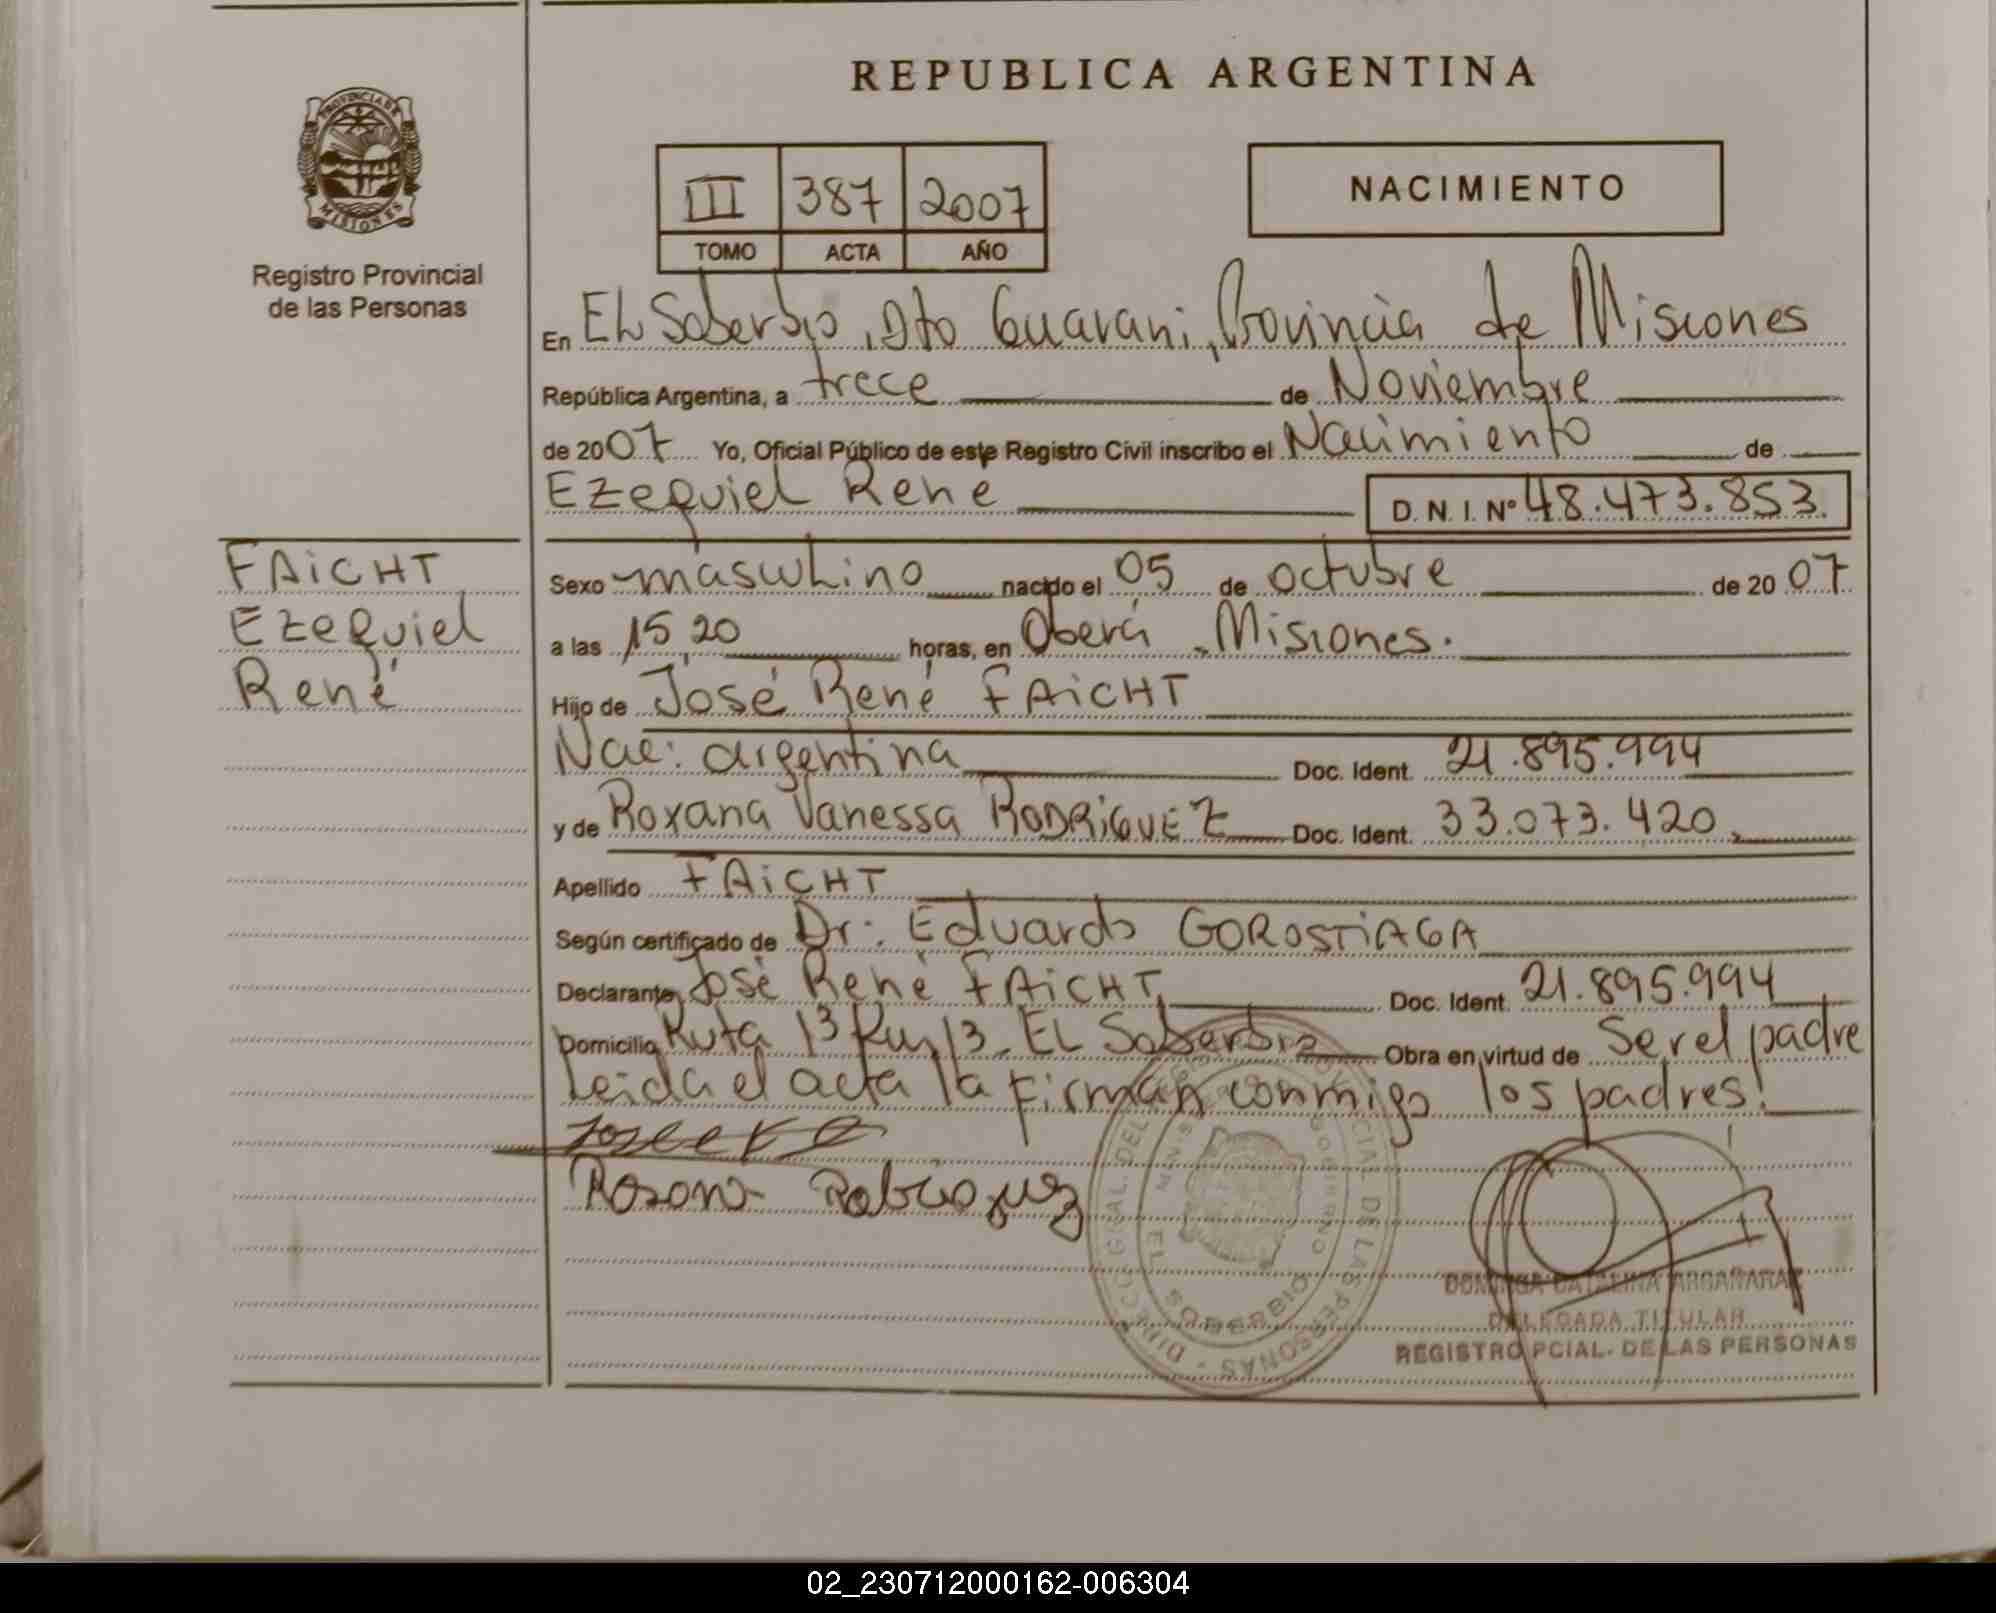 REPUBLICA ARGENTINA
PROVINCIA DE
MISIONES
Registro Provincial
de las Personas
III 387 2007
TOMO ACTA AÑO
NACIMIENTO
En EL Soberbio, Dto Guarani, Provincia de Misiones
República Argentina, a trece de Noviembre
de 2007 Yo, Oficial Público de este Registro Civil inscribo el Nacimiento de
Ezequiel René D. N. I. Nº 48.473.853.
FAiCHT
Ezequiel
René
Sexo masculino nacido el 05 de octubre de 2007
a las 15,20 horas, en Oberá - Misiones.
Hijo de José René FAiCHT
Nac: argentina Doc. Ident. 21.895.994
y de Roxana Vanessa RODRiGUEZ Doc. Ident. 33.073.420
Apellido FAiCHT
Según certificado de Dr: Eduardo GOROSTiAGA
Declarante José René FAiCHT Doc. Ident. 21.895.994
Domicilio Ruta 13 Km 13 - EL Soberbio Obra en virtud de Ser el padre
Leida el acta la firman conmigo los padres!
Rosana Rodriguez
DIRECC. GRAL. DEL REGISTRO PROVINCIAL DE LAS PERSONAS
MINISTERIO DE GOBIERNO
EL SOBERBIO
DOMINGA CATALINA ARGAÑARAZ
DELEGADA TITULAR
REGISTRO PCIAL. DE LAS PERSONAS
02_230712000162-006304